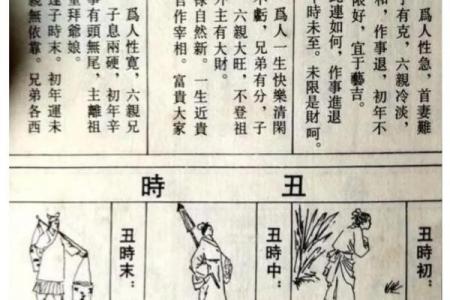 爲人性急,首妻難
有克,六親冷淡,
和,作事退,初年不
限好,宜于藝吉。
此連如何,作事進退
時未至。未限是財呵。
爲人一生快樂清閑
不虧,兄弟有分,子
六親大旺,不登祖
外主有大財。
祿自然新。一生近貴
官作宰相。富貴大家
爲人性寬,六親兄
子息兩硬,初年辛
事有頭無尾,主離祖
重拜爺娘。
子時末。初年運未
無依靠。兄弟各西
丑時
丑時初:
丑時中:
丑時末: